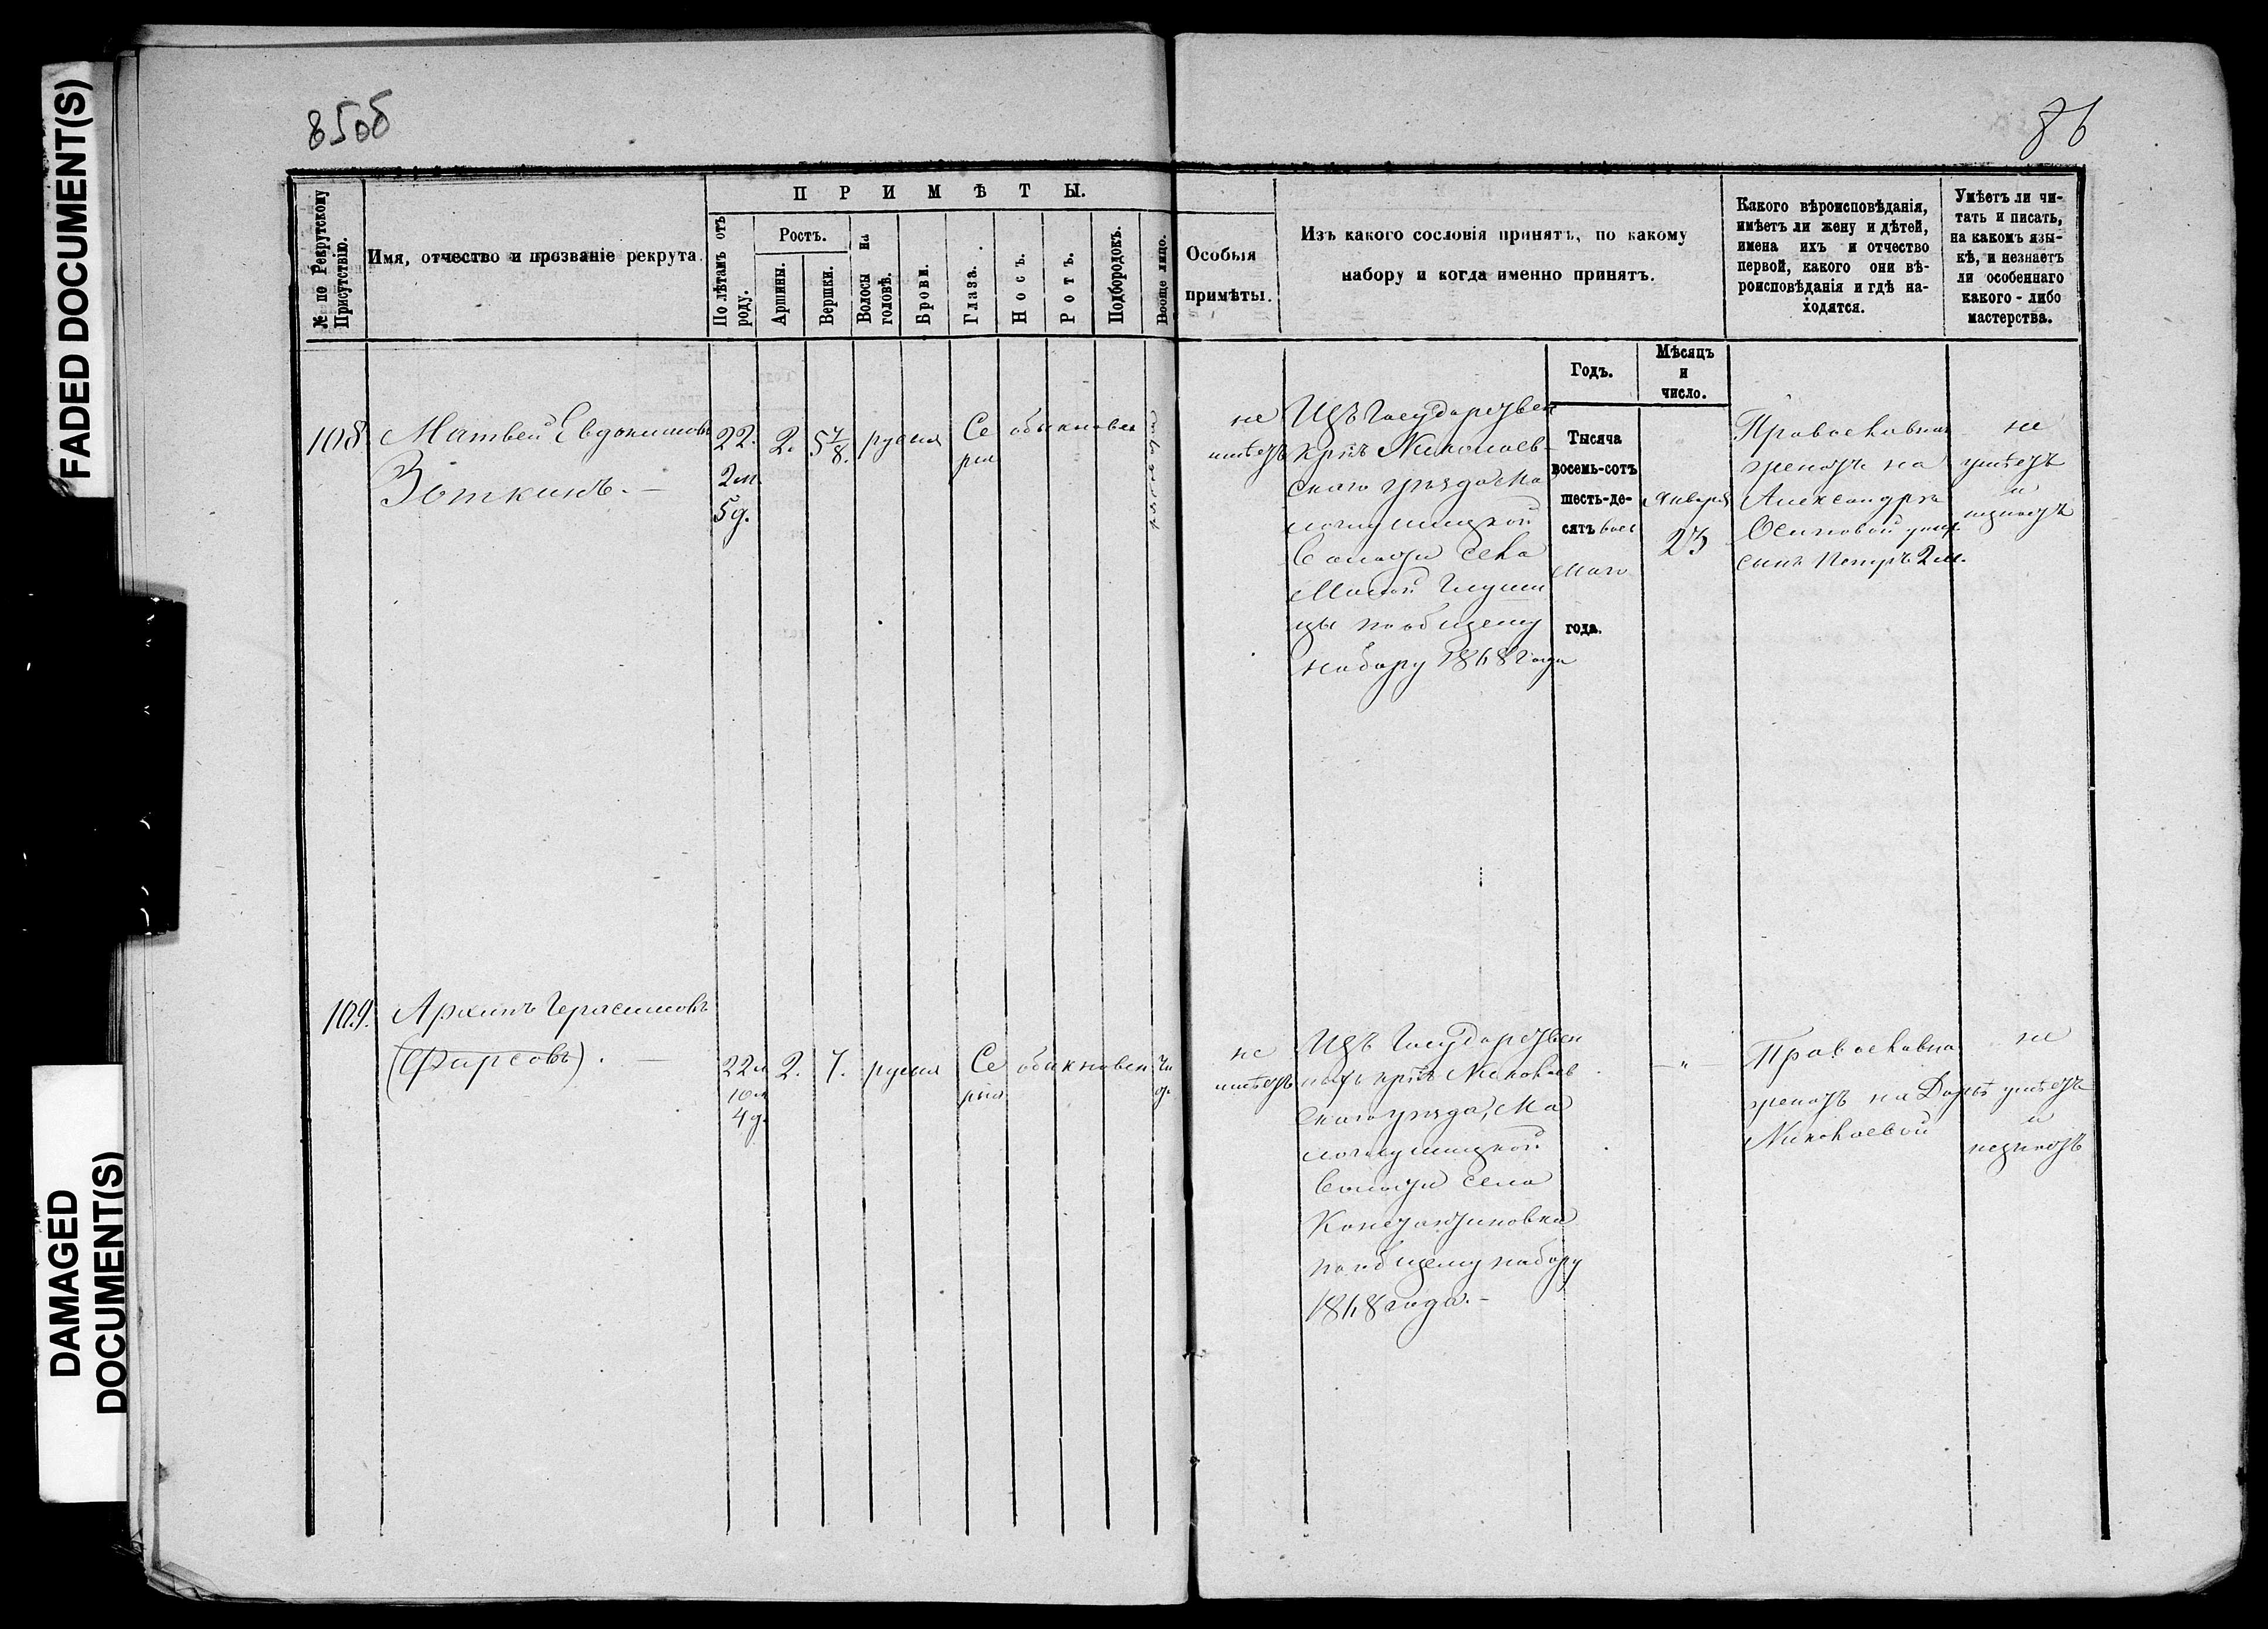 FADED DOCUMENT(S)
DAMAGED
DOCUMENT(S)
85об
86
№ по Рекрутскому
Присутствію.
Имя, отчество и прозваніе рекрута
ПРИМѢТЫ.
По лѣтамъ отъ
роду.
Ростъ.
Аршины.
Вершки.
Волосы на
головѣ.
Брови.
Глаза.
Носъ.
Ротъ.
Подбородокъ.
Вообще лицо.
Особыя
примѣты.
Изъ какого сословія принятъ, по какому
набору и когда именно принятъ.
Какого вѣроисповѣданія,
имѣетъ ли жену и дѣтей,
имена ихъ и отчество
первой, какого они вѣ-
роисповѣданія и гдѣ на-
ходятся.
Умѣетъ ли чи-
тать и писать,
на какомъ язы-
кѣ, и незнаетъ
ли особеннаго
какого-либо
мастерства.
Годъ.
Мѣсяцъ
и
число.
108.
Матвей Евдокимовъ
Зоткинъ.
22.
2м
5д.
2.
5 7/8.
русыя
Се
рыя
обыкновен
не
имѣетъ
Изъ Государствен
крѣ Николаев-
скаго уѣзда Ма
логлушицкой
волости села
Малой Глуши
цы по общему
набору 1868 года
Тысяча
восемь-сотъ
шесть-де-
сятъ вось
маго
года.
Января
23
Православнаго
женатъ на
Александрѣ
Осиповой
сынъ Петръ 2м.
не
умѣетъ
и
незнаетъ
109.
Архипъ Герасимовъ
(Фирсовъ).
22л
10м
4д.
2.
7.
русыя
Се
рыя
обыкновен
не
имѣетъ
Изъ Государствен
ныхъ крѣ Николаев
скаго уѣзда, Ма
логлушицкой
волости села
Константиновки
по общему набору
1868 года.
— „ —
Православна
женатъ на Дарьѣ
Николаевой
не
умѣетъ
и
незнаетъ